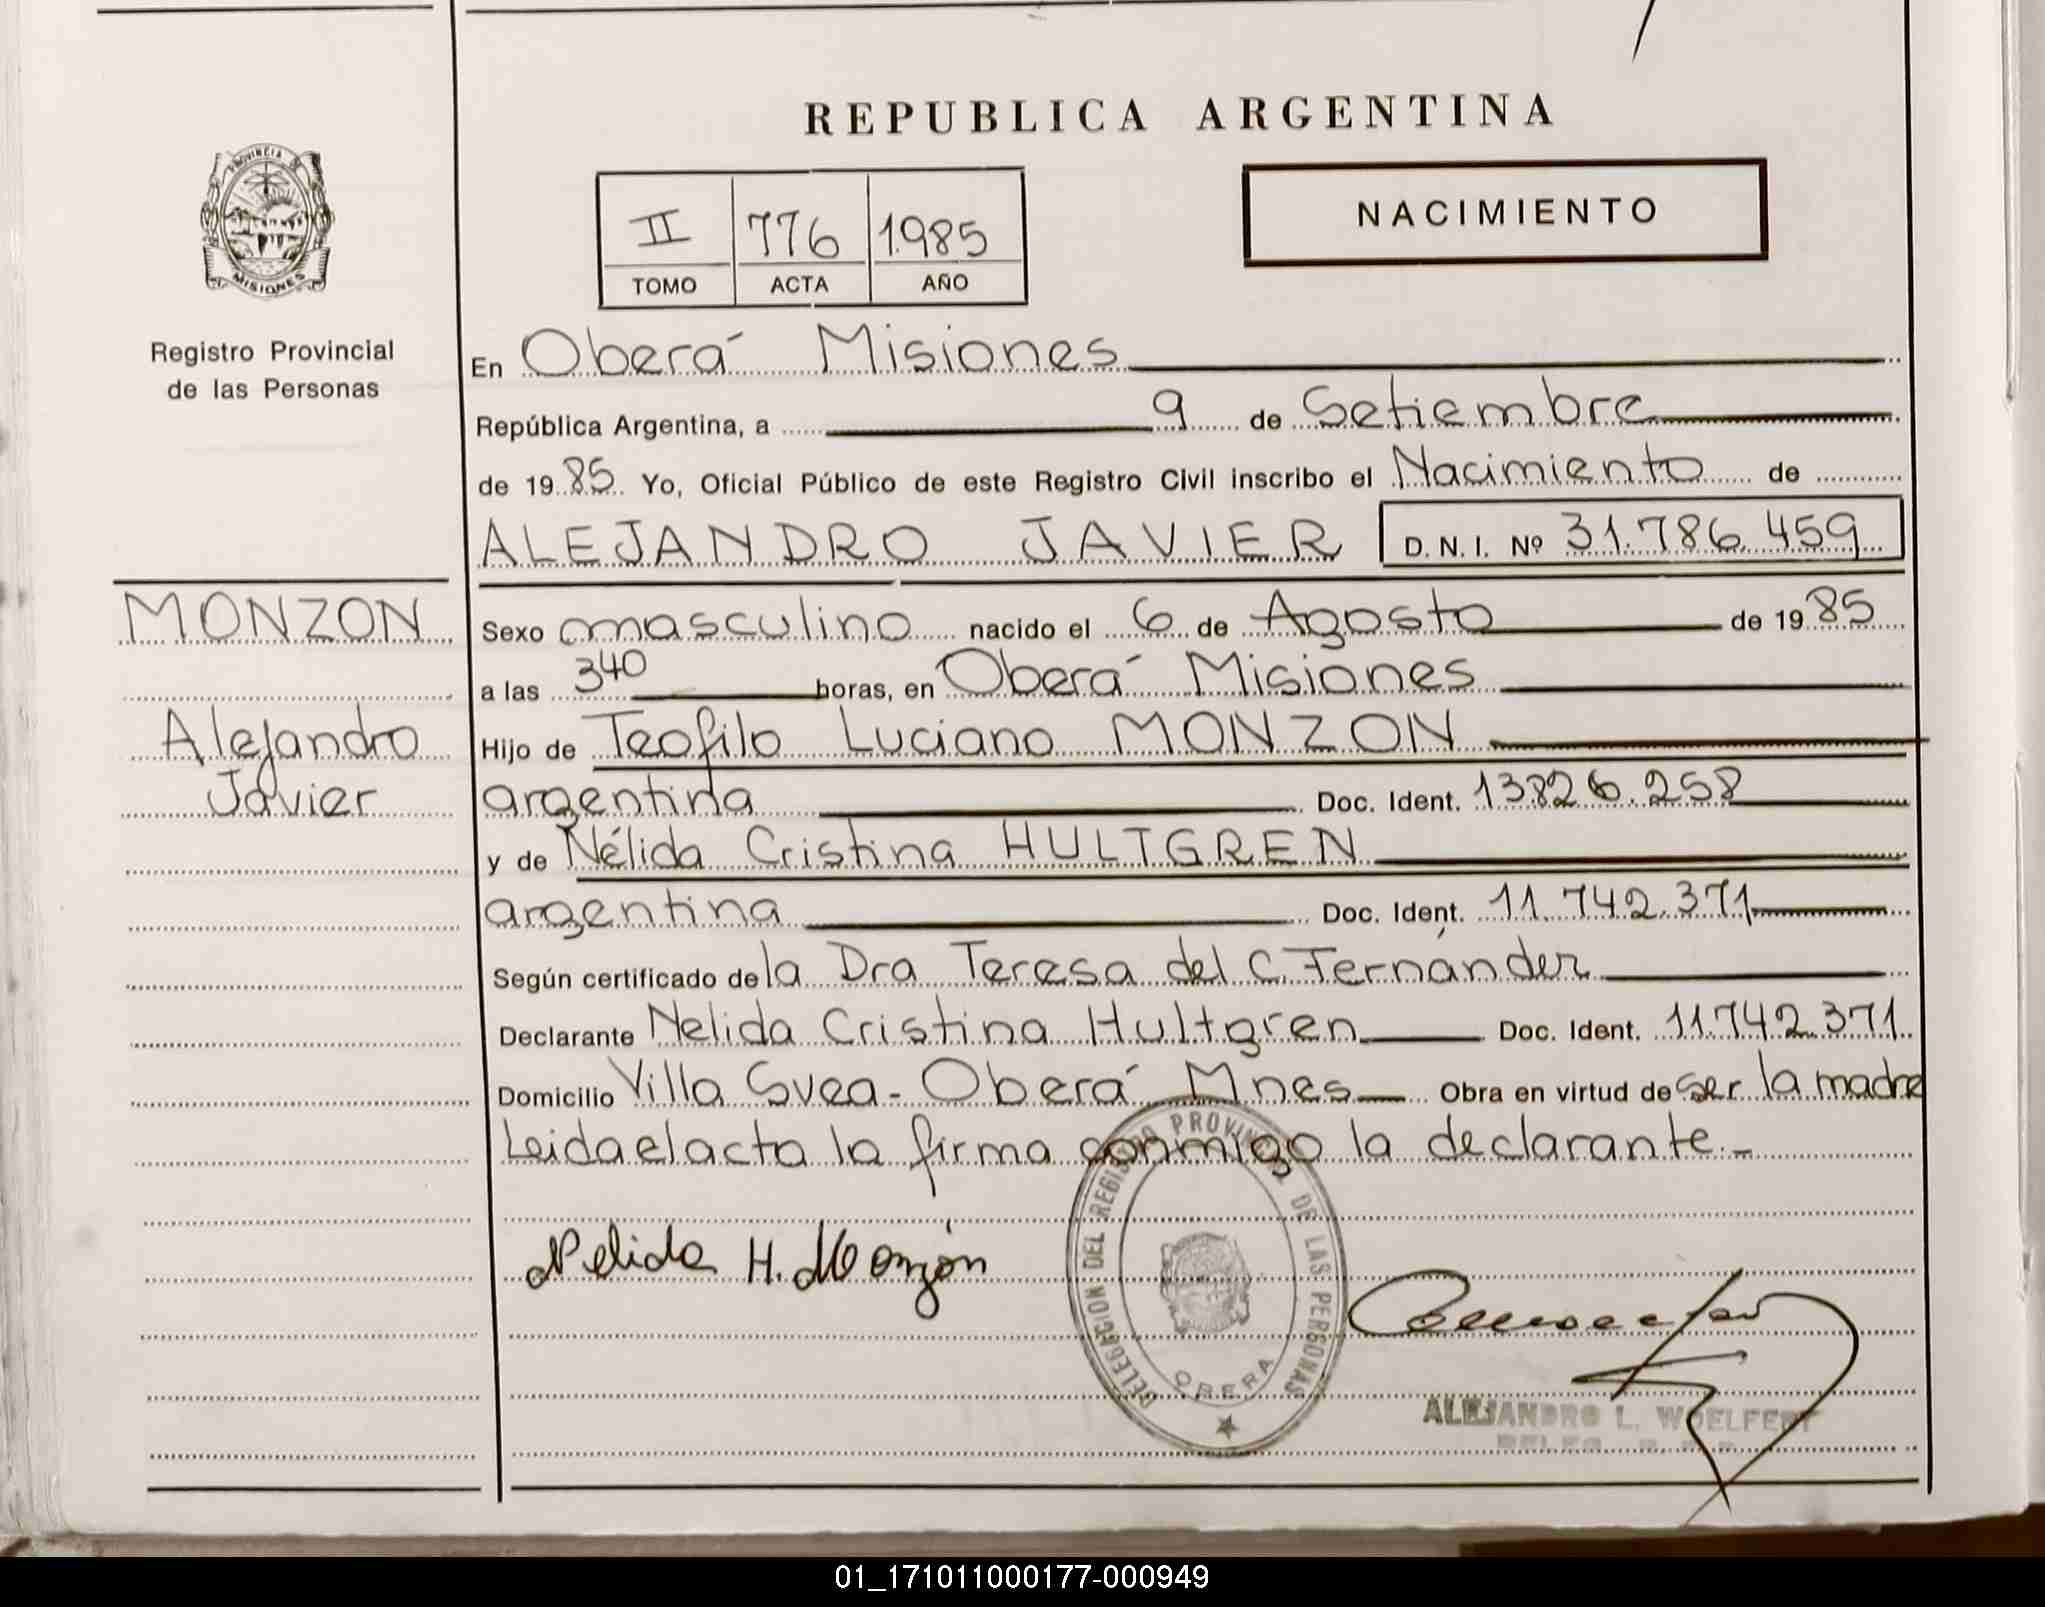 REPUBLICA ARGENTINA
PROVINCIA DE
MISIONES
Registro Provincial
de las Personas
II 776 1.985
TOMO ACTA AÑO
NACIMIENTO
En Oberá Misiones
República Argentina, a 9 de Setiembre
de 1985 Yo, Oficial Público de este Registro Civil inscribo el Nacimiento de
ALEJANDRO JAVIER D. N. I. Nº 31.786.459
MONZON
Alejandro
Javier
Sexo masculino nacido el 6 de Agosto de 1985
a las 340 horas, en Oberá Misiones
Hijo de Teofilo Luciano MONZON
argentina Doc. Ident. 13826.258
y de Nélida Cristina HULTGREN
argentina Doc. Ident. 11.742.371
Según certificado de la Dra Teresa del C. Fernánder
Declarante Nelida Cristina Hultgren Doc. Ident. 11.742.371
Domicilio Villa Svea - Oberá Mnes Obra en virtud de ser la madre
Leida el acta la firma conmigo la declarante.-
Nelida H. Monzón
DELEGACION DEL REGISTRO PROVINCIAL DE LAS PERSONAS
OBERA
ALEJANDRO L. WOELFERT
01_171011000177-000949